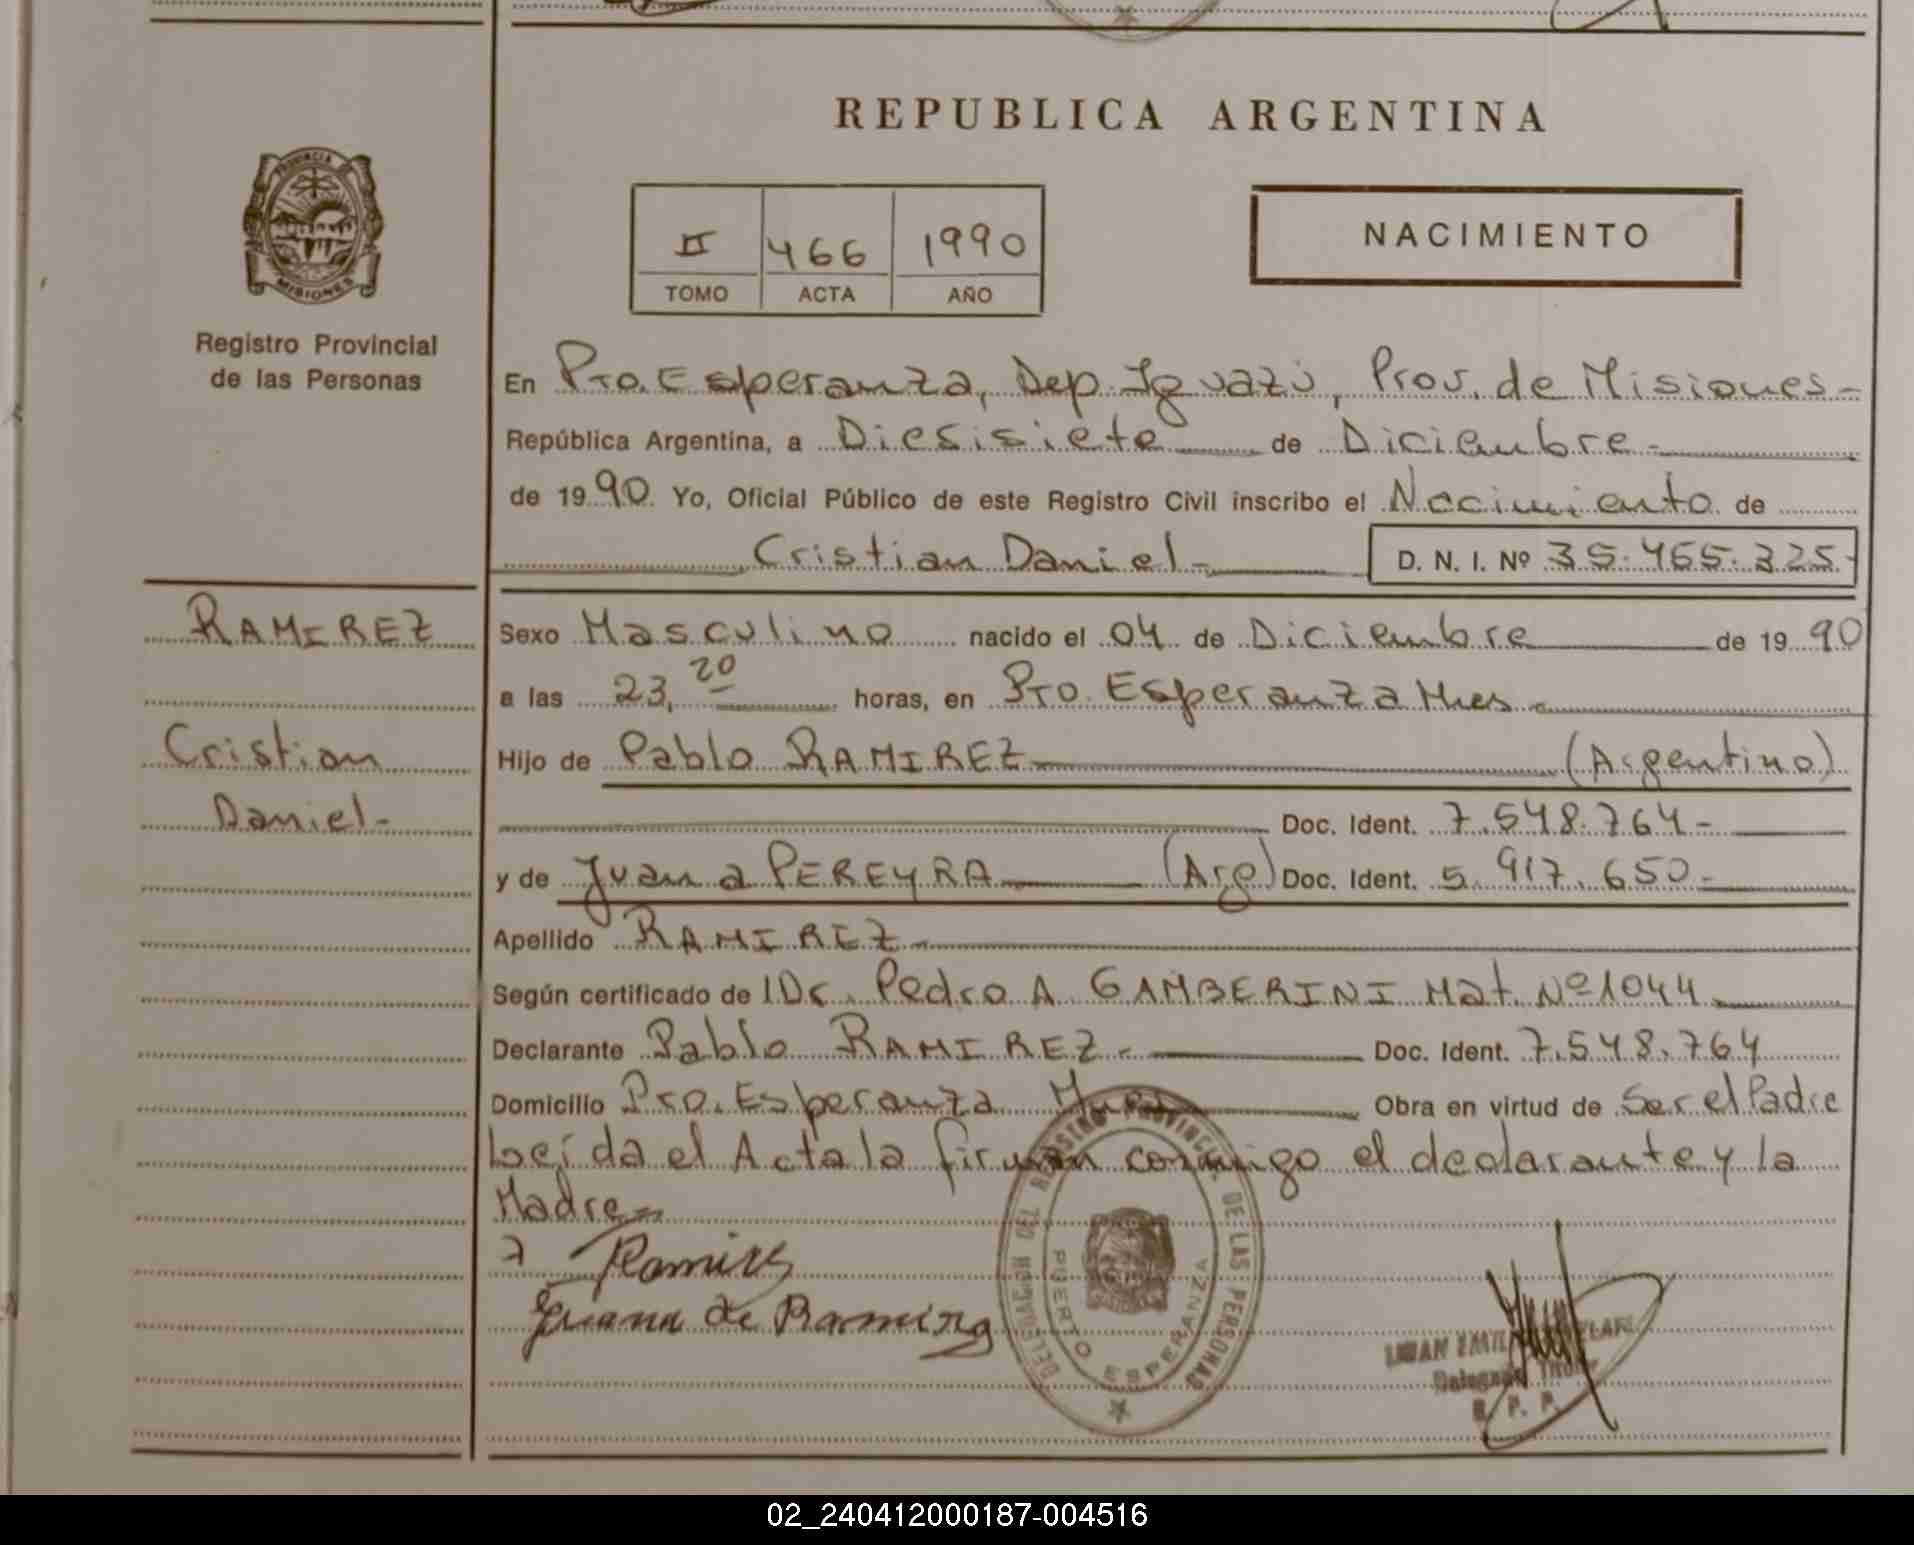 REPUBLICA ARGENTINA
PROVINCIA
MISIONES
Registro Provincial
de las Personas
II 466 1990
TOMO ACTA AÑO
NACIMIENTO
En Pto. Esperanza, Dep. Iguazú, Prov. de Misiones-
República Argentina, a Diesisiete de Diciembre-
de 1990. Yo, Oficial Público de este Registro Civil inscribo el Nacimiento de
Cristian Daniel- D. N. I. Nº 35.465.325-
RAMIREZ
Cristian
Daniel-
Sexo Masculino nacido el 04 de Diciembre de 1990
a las 23,20 horas, en Pto. Esperanza Mnes-
Hijo de Pablo RAMIREZ (Argentino)
Doc. Ident. 7.548.764-
y de Juana PEREYRA (Arg) Doc. Ident. 5.917.650-
Apellido RAMIREZ-
Según certificado de Dr. Pedro A. GAMBERINI Mat. Nº 1044
Declarante Pablo RAMIREZ- Doc. Ident. 7.548.764
Domicilio Pto. Esperanza Mnes Obra en virtud de Ser el Padre
Leída el Acta la firman conmigo el declarante y la
Madre=
Ramirez
Juana de Ramirez
DELEGACION DEL REGISTRO PROVINCIAL DE LAS PERSONAS
PUERTO ESPERANZA
Delegado Titular
R. P. P.
02_240412000187-004516